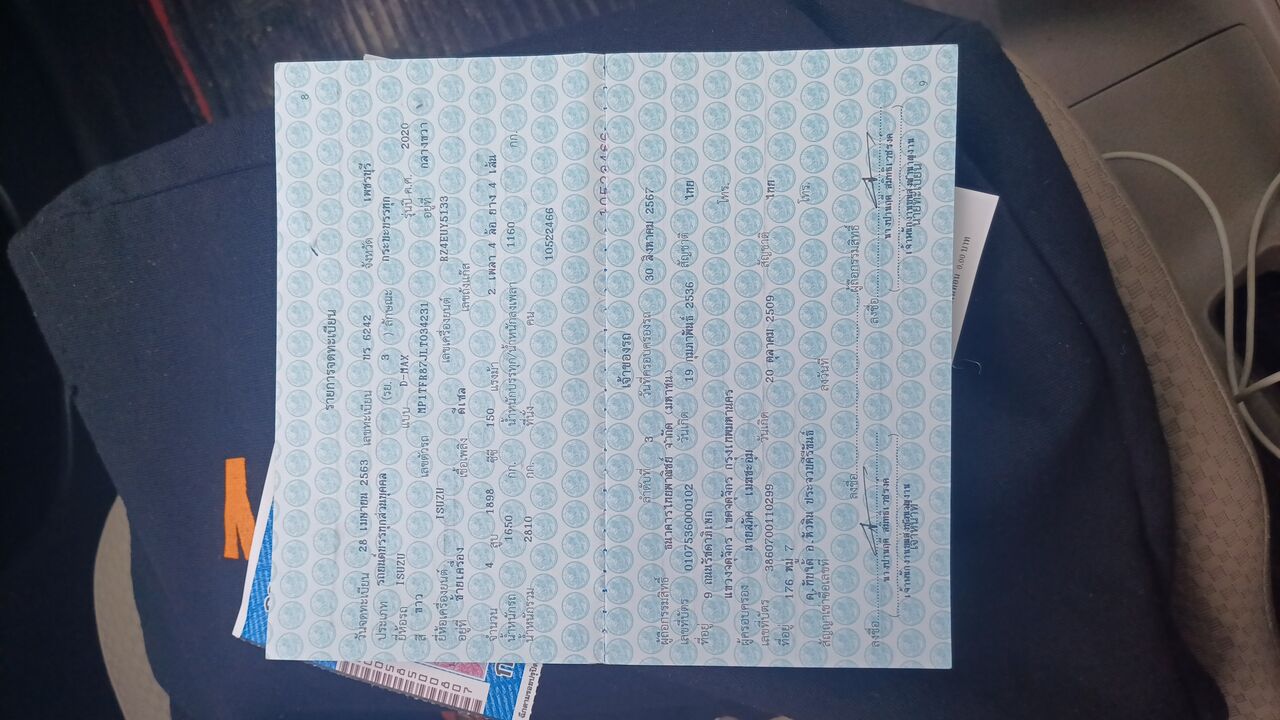 8
รายการจดทะเบียน
วันจดทะเบียน 28 เมษายน 2563 เลขทะเบียน ฒร 6242 จังหวัด เพชรบุรี
ประเภท รถยนต์บรรทุกส่วนบุคคล (รย. 3 ) ลักษณะ กระบะบรรทุก
ยี่ห้อรถ ISUZU แบบ D-MAX รุ่นปี ค.ศ. 2020
สี ขาว เลขตัวรถ MP1TFR87JLT034231 อยู่ที่ กลางขวา
ยี่ห้อเครื่องยนต์ ISUZU เลขเครื่องยนต์ RZ4EUY5133
อยู่ที่ ซ้ายเครื่อง เชื้อเพลิง ดีเซล เลขถังแก๊ส
จำนวน 4 สูบ 1898 ซีซี 150 แรงม้า 2 เพลา 4 ล้อ ยาง 4 เส้น
น้ำหนักรถ 1650 กก. น้ำหนักบรรทุก/น้ำหนักลงเพลา 1160 กก.
น้ำหนักรวม 2810 กก. ที่นั่ง คน
10522466
10522466
เจ้าของรถ
ลำดับที่ 3 วันที่ครอบครองรถ 30 สิงหาคม 2567
ผู้ถือกรรมสิทธิ์ ธนาคารไทยพาณิชย์ จำกัด (มหาชน)
เลขที่บัตร 0107536000102 วันเกิด 19 กุมภาพันธ์ 2536 สัญชาติ ไทย
ที่อยู่ 9 ถนนรัชดาภิเษก โทร.
แขวงจตุจักร เขตจตุจักร กรุงเทพมหานคร
ผู้ครอบครอง นายสุภัค
เลขที่บัตร 3860700110299 วันเกิด 20 ตุลาคม 2509 สัญชาติ ไทย
ที่อยู่ 176 หมู่ 7 โทร.
ต.ทับใต้ อ.หัวหิน ประจวบคีรีขันธ์
สัญญาเช่าซื้อเลขที่ ลงวันที่
ลงชื่อ ผู้ถือกรรมสิทธิ์
ลงชื่อ ลงชื่อ
เจ้าหน้าที่ นายทะเบียน
9
0.00 บาท